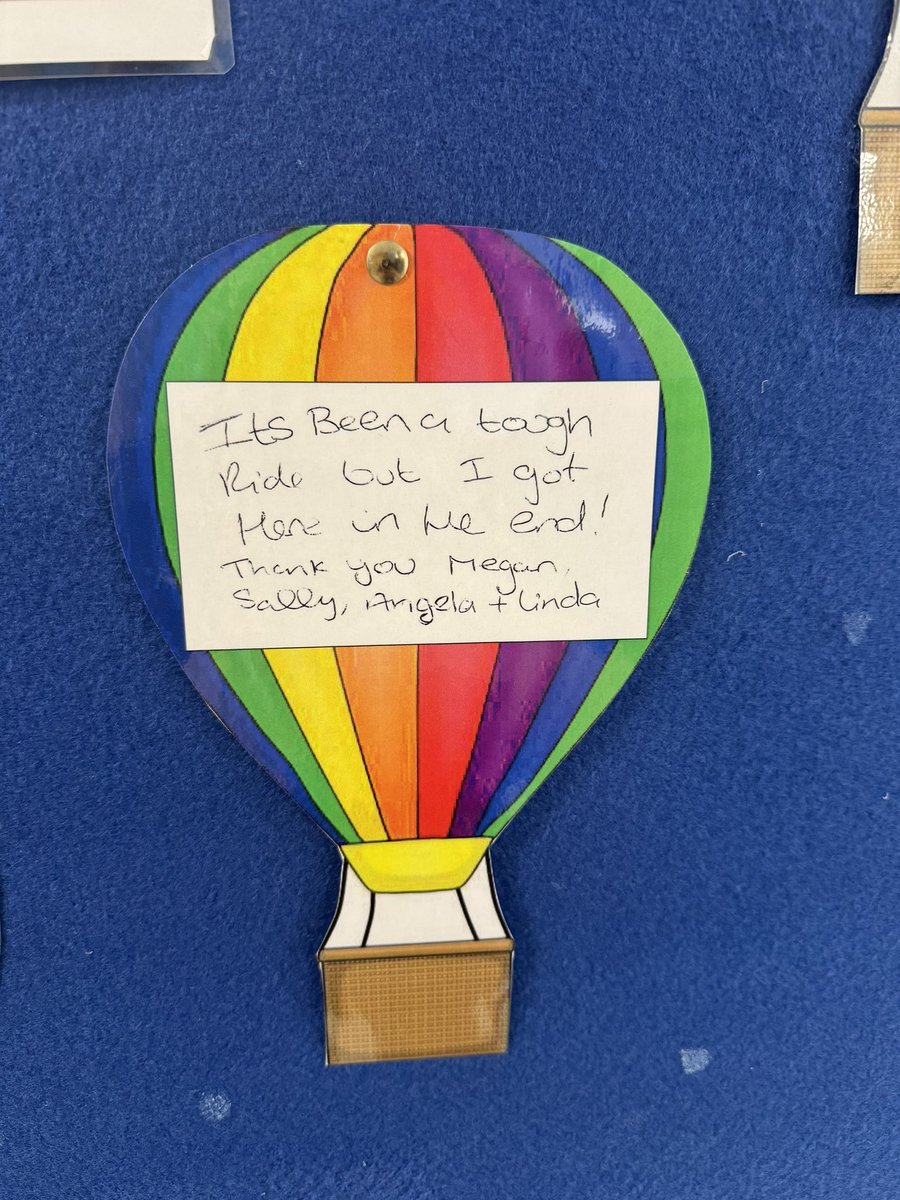 Its Been a tough
Ride but I got
Here in the end!
Thank you Megan,
Sally, Angela + Linda